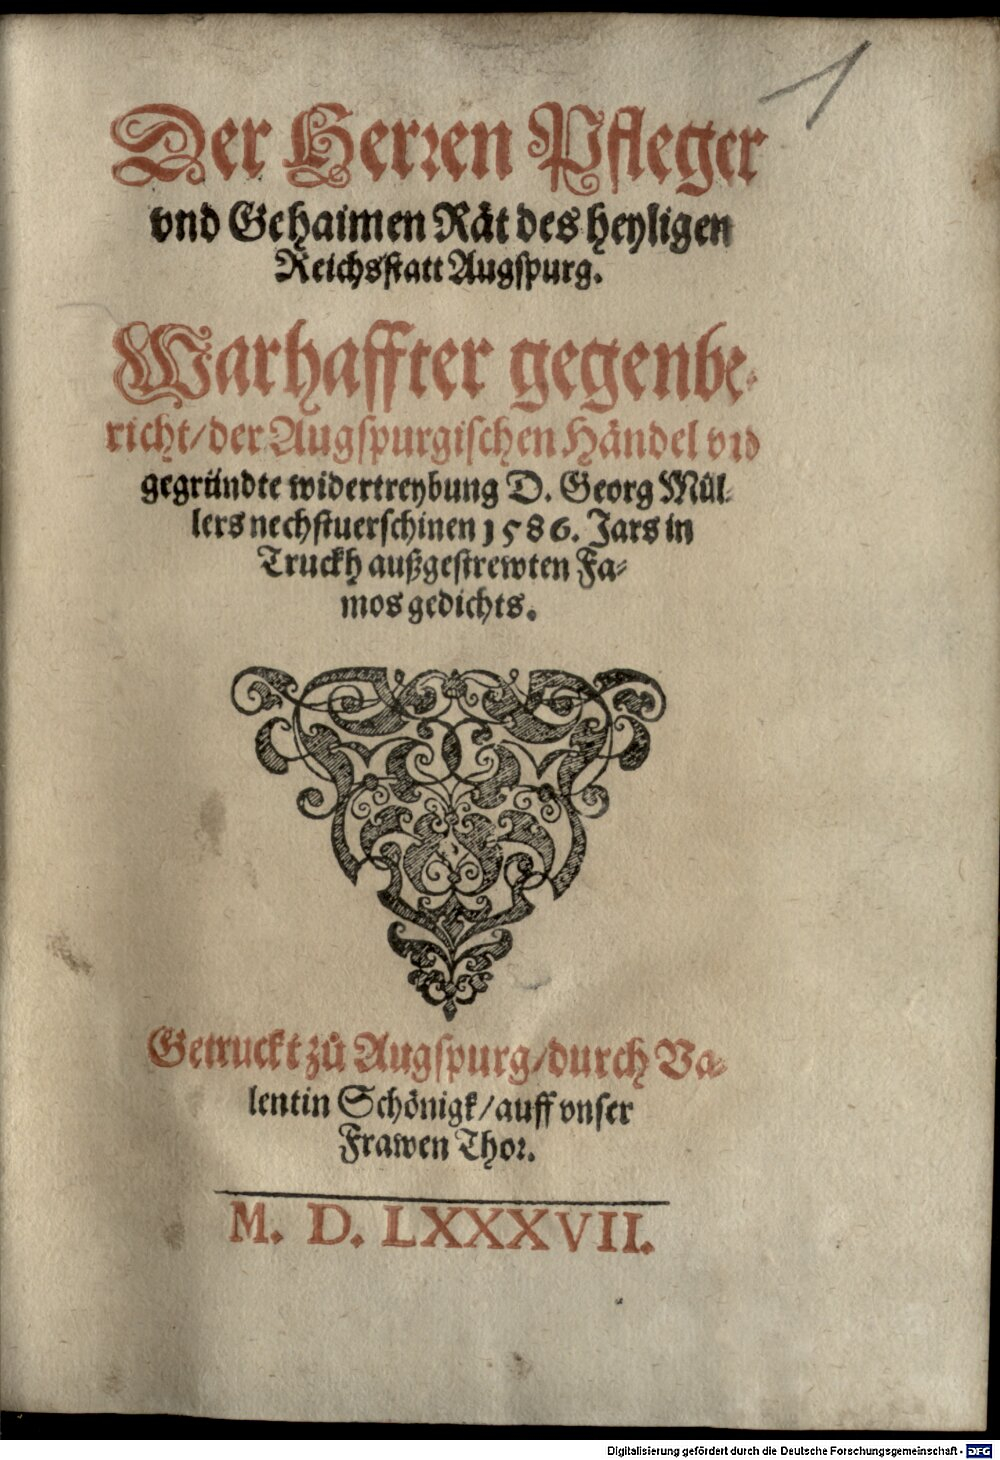 1
Der Herren Pfleger
vnd Gehaimen Rät des heyligen
Reichsstatt Augspurg.
Warhaffter gegenbe-
richt/der Augspurgischen Händel vnd
gegründte widertreybung D. Georg Mül-
lers nechstuerschinen 1586. Jars in
Truckh außgestrewten Fa-
mos gedichts.
Getruckt zů Augspurg/durch Va-
lentin Schönigk/auff vnser
Frawen Thor.
M. D. LXXXVII.
Digitalisierung gefördert durch die Deutsche Forschungsgemeinschaft - DFG